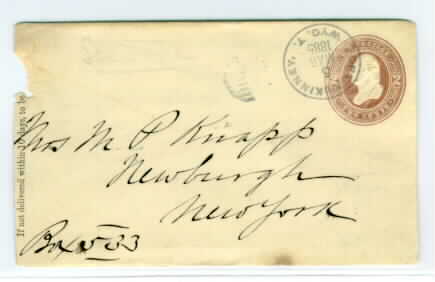 McKINNEY, WYO. T.
MAR
1885
If not delivered within 10 days, to be
Mrs M. P. Knapp
Newburgh
New York
Box 533